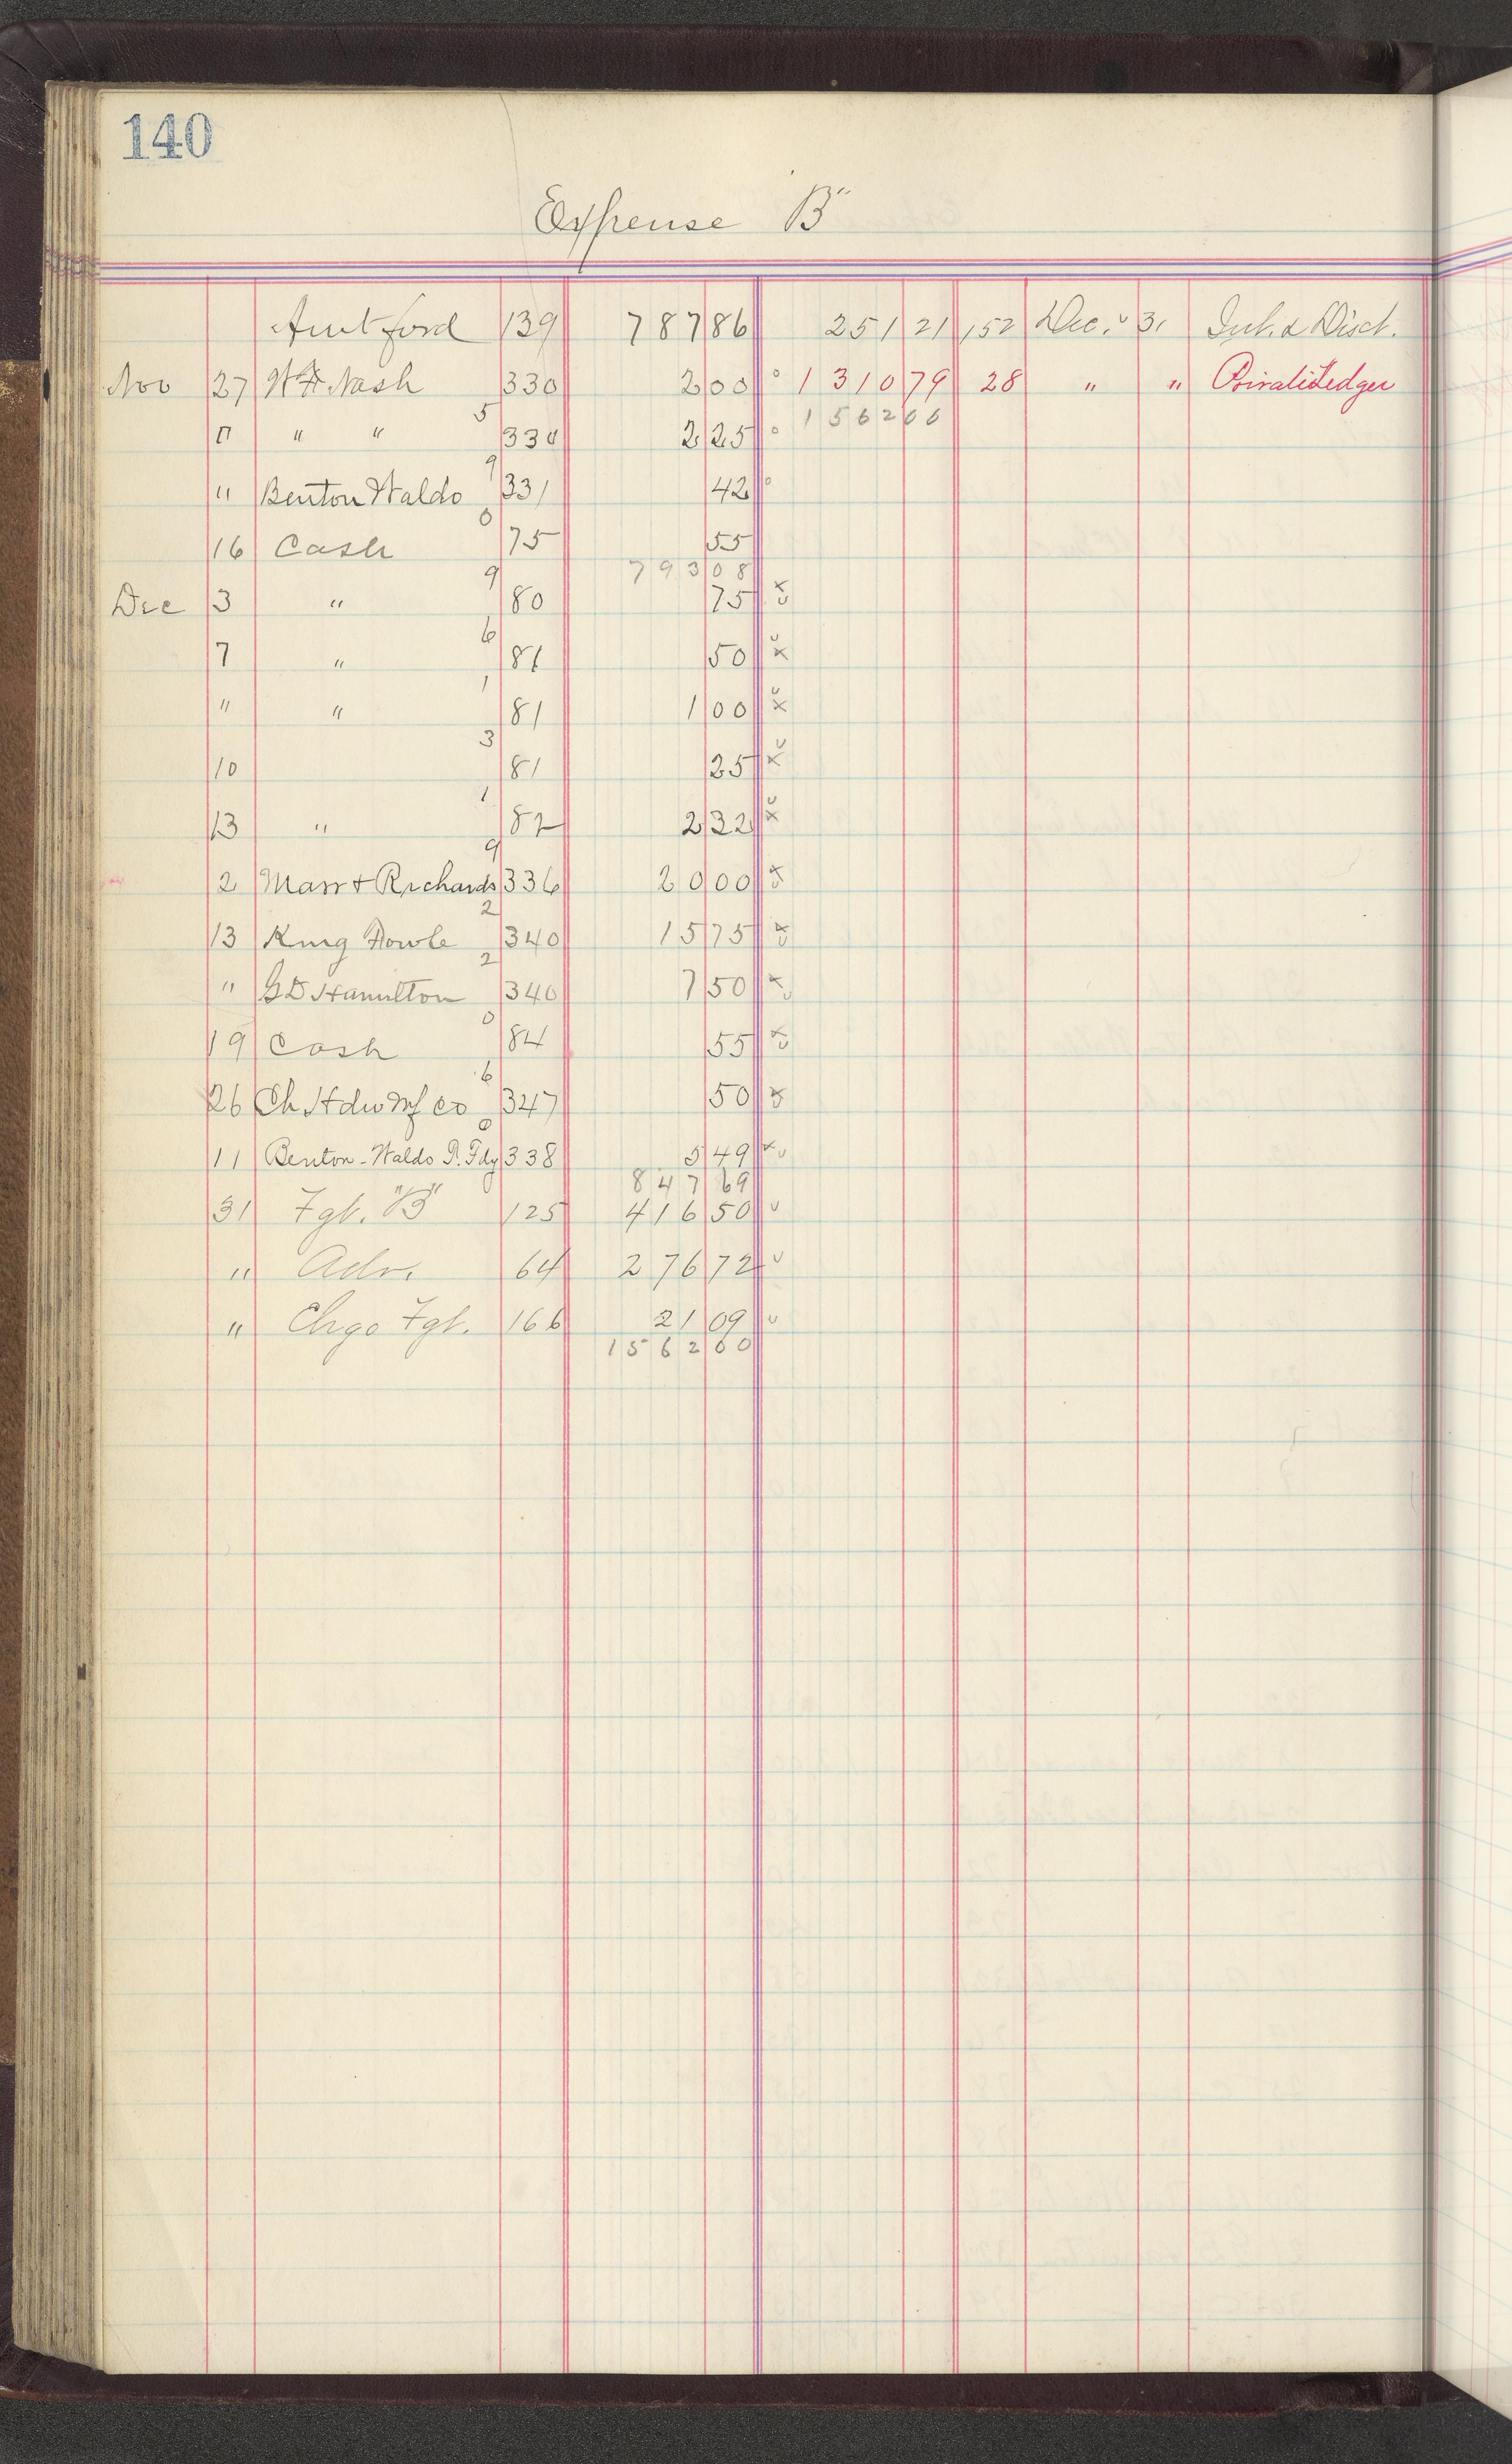 140
Expense "B"
Amt ford 139 787 86 251 21 152 Dec. 31 Int. & Disct.
Nov 27 W F Nash 330 2 00 1310 79 28 " " Private Ledger
" " " 5 330 2 25 1562 00
" Benton Waldo 9 331 42
16 Cash 0 75 55
793 08
Dec 3 " 9 80 75
7 " 6 81 50
" " 1 81 1 00
10 3 81 25
13 " 1 82 2 32
2 Marr & Richards 9 336 20 00
13 King Fowle 2 340 15 75
" G D Hamilton 2 340 7 50
19 Cash 0 84 55
26 Ch Hdw Mf Co 6 347 50
11 Benton-Waldo T. Fdy 0 338 5 49
847 69
31 Fgt. "B" 125 416 50
" Adv. 64 276 72
" Chgo Fgt. 166 21 09
1562 00